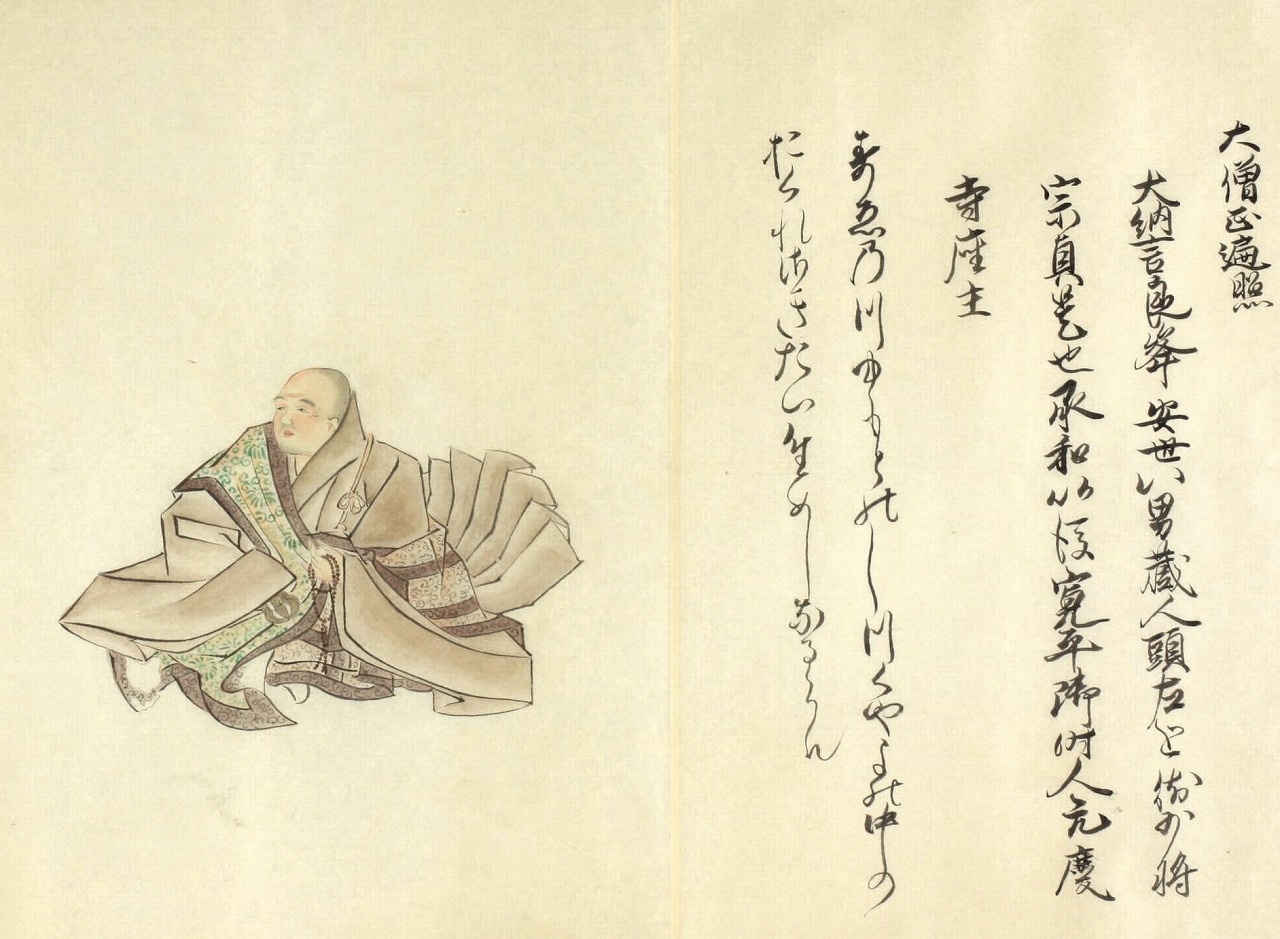 大僧正遍照
大納言良峯安世八男蔵人頭左近衛少将
宗貞是也承和以後寛平御時人元慶
寺座主
すゑのつゆもとのしつくやよの中の
おくれさきたつためしなるらん